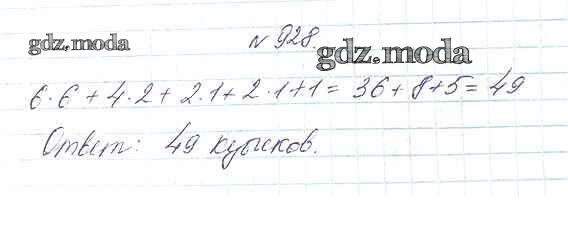 gdz.moda
№ 928.
gdz.moda
6·6 + 4·2 + 2·1 + 2·1+1 = 36 + 8+5 = 49
Ответ: 49 кусков.